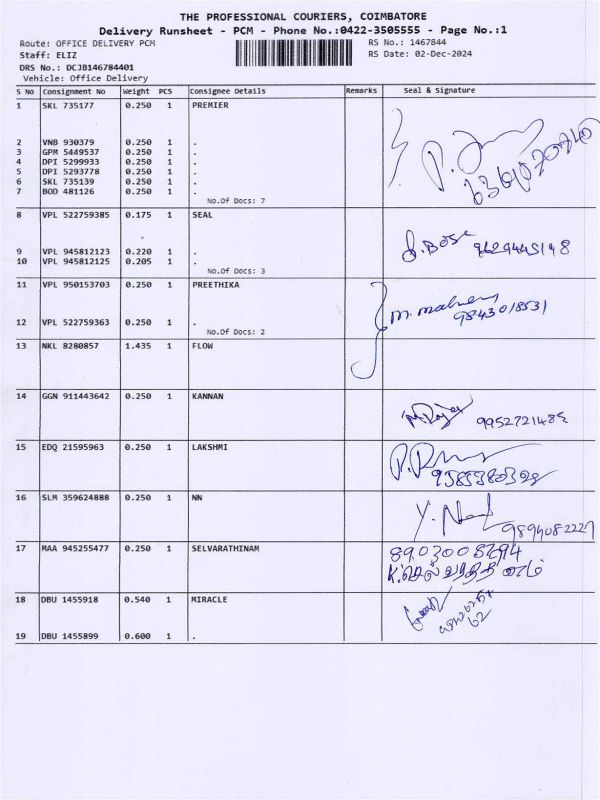 THE PROFESSIONAL COURIERS, COIMBATORE
Delivery Runsheet - PCM - Phone No.:0422-3505555 - Page No.:1
Route: OFFICE DELIVERY PCM RS No.: 1467844
Staff: ELIZ RS Date: 02-Dec-2024
DRS No.: DCJB146784401
Vehicle: Office Delivery
S No Consignment No Weight PCS Consignee Details Remarks Seal & Signature
1 SKL 735177 0.250 1 PREMIER
2 VNB 930379 0.250 1 .
3 GPM 5449537 0.250 1 .
4 DPI 5299933 0.250 1 .
5 DPI 5293778 0.250 1 .
6 SKL 735139 0.250 1 .
7 BOD 481126 0.250 1 .
No.Of Docs: 7
8 VPL 522759385 0.175 1 SEAL
S.Bose 9629445198
9 VPL 945812123 0.220 1 .
10 VPL 945812125 0.205 1 .
No.Of Docs: 3
11 VPL 950153703 0.250 1 PREETHIKA
9843018531
12 VPL 522759363 0.250 1 .
No.Of Docs: 2
13 NKL 8280857 1.435 1 FLOW
14 GGN 911443642 0.250 1 KANNAN
15 EDQ 21595963 0.250 1 LAKSHMI
16 SLM 359624888 0.250 1 NN
9894082227
17 MAA 945255477 0.250 1 SELVARATHINAM
8903005294
K.செல்வரத்தினம்
18 DBU 1455918 0.540 1 MIRACLE
19 DBU 1455899 0.600 1 .